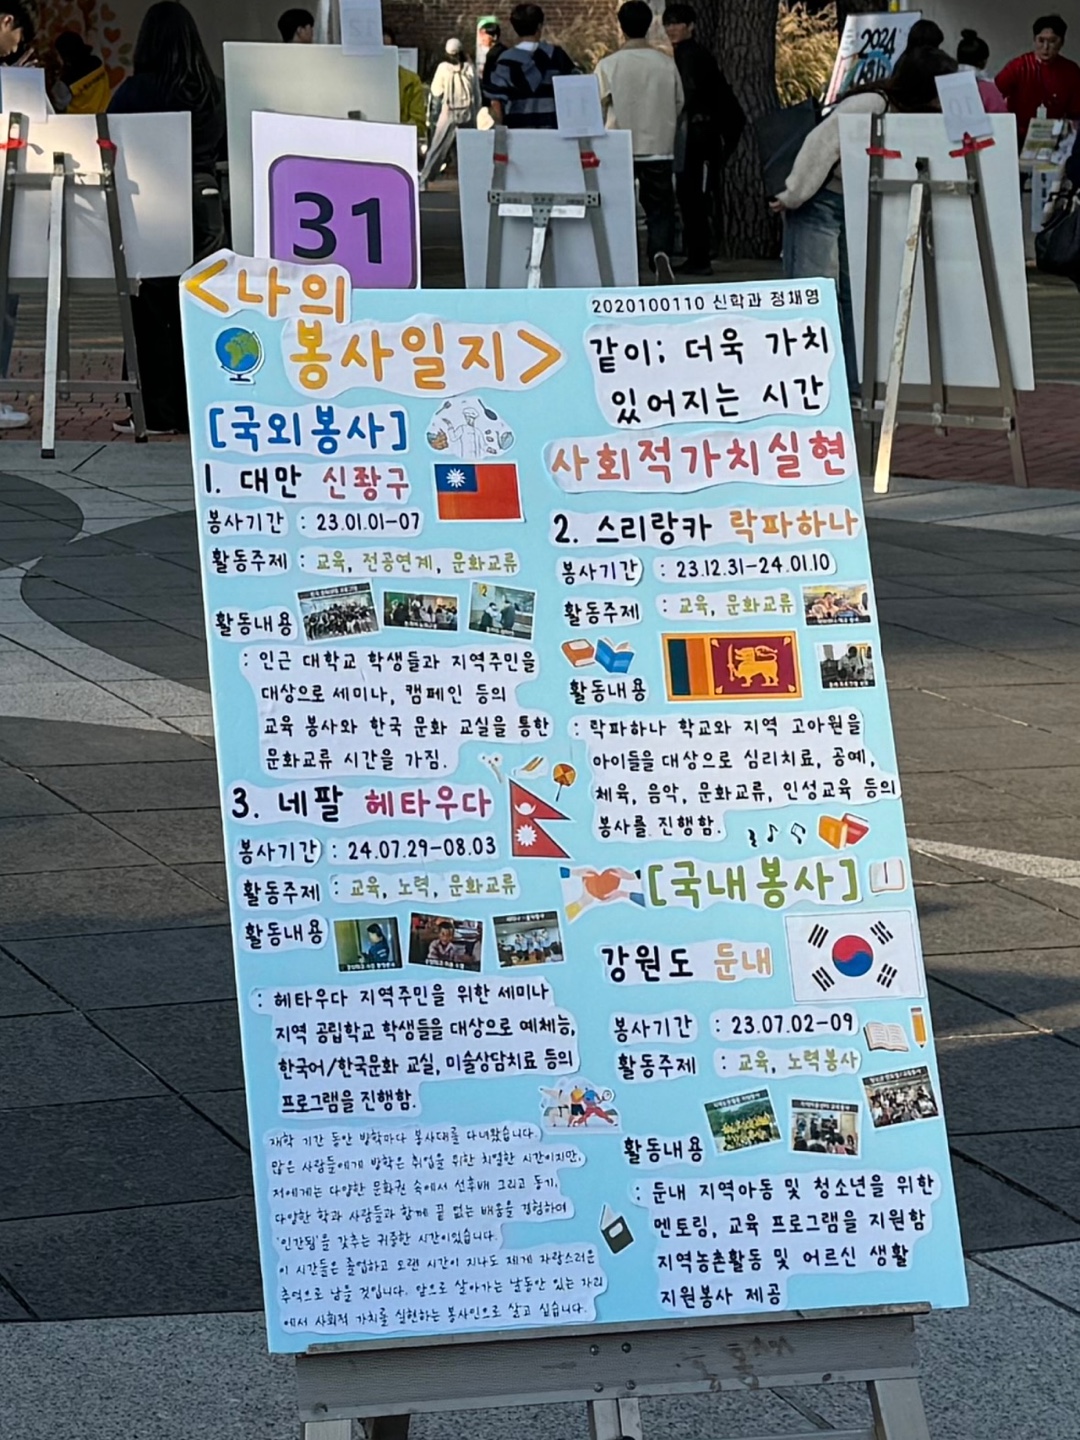 12
11
10
2024
31
<나의
봉사일지>
2020100110 신학과 정채영
같이; 더욱 가치
있어지는 시간
사회적가치실현
[국외봉사]
1. 대만 신좡구
봉사기간 : 23.01.01-07
활동주제 : 교육, 전공연계, 문화교류
활동내용
: 인근 대학교 학생들과 지역주민을
대상으로 세미나, 캠페인 등의
교육 봉사와 한국 문화 교실을 통한
문화교류 시간을 가짐.
2. 스리랑카 락파하나
봉사기간 : 23.12.31-24.01.10
활동주제 : 교육, 문화교류
활동내용
: 락파하나 학교와 지역 고아원을
아이들을 대상으로 심리치료, 공예,
체육, 음악, 문화교류, 인성교육 등의
봉사를 진행함.
3. 네팔 헤타우다
봉사기간 : 24.07.29-08.03
활동주제 : 교육, 노력, 문화교류
활동내용
: 헤타우다 지역주민을 위한 세미나
지역 공립학교 학생들을 대상으로 예체능,
한국어/한국문화 교실, 미술상담치료 등의
프로그램을 진행함.
[국내봉사]
강원도 둔내
봉사기간 : 23.07.02-09
활동주제 : 교육, 노력봉사
활동내용
: 둔내 지역아동 및 청소년을 위한
멘토링, 교육 프로그램을 지원함
지역농촌활동 및 어르신 생활
지원봉사 제공
재학 기간 동안 방학마다 봉사대를 다녀왔습니다.
많은 사람들에게 방학은 취업을 위한 치열한 시간이지만,
저에게는 다양한 문화권 속에서 선후배 그리고 동기,
다양한 학과 사람들과 함께 끝 없는 배움을 경험하며
'인간됨'을 갖추는 귀중한 시간이었습니다.
이 시간들은 졸업하고 오랜 시간이 지나도 제게 자랑스러운
추억으로 남을 것입니다. 앞으로 살아가는 날동안 있는 자리
에서 사회적 가치를 실현하는 봉사인으로 살고 싶습니다.